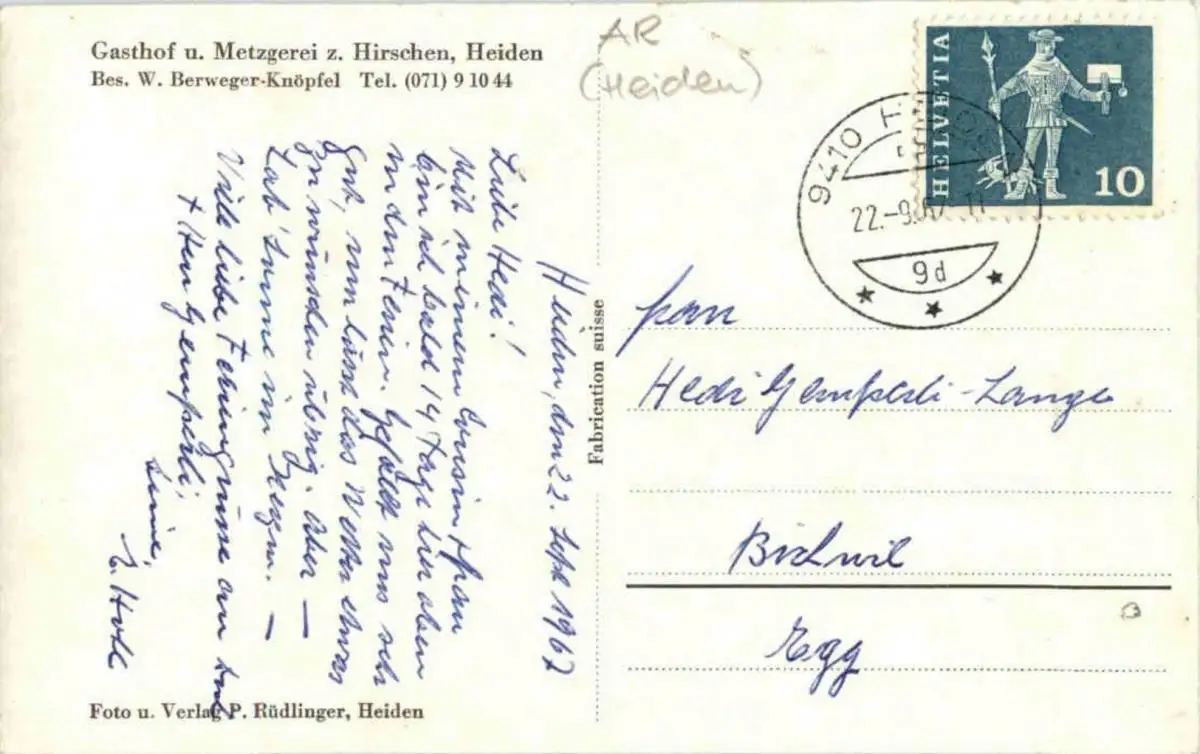 Gasthof u. Metzgerei z. Hirschen, Heiden
Bes. W. Berweger-Knöpfel Tel. (071) 9 10 44
AR
(Heiden)
HELVETIA
10
9410 HEIDEN
22.-9.67-11
9d
Heiden, den 22. Sept 1967
Liebe Hedi!
Mit meinem Cousin + Frau
bin ich bald 14 Tage hier oben
in den Ferien. Gefällt uns sehr
gut, nur lässt das Wetter etwas
zu wünschen übrig. Aber —
Lab' Sonne im Herzen. —
Viele liebe Feriengrüsse an Dich
+ Herr Gemperli,
Deine,
E. Hotl
Fabrication suisse
Frau
Hedi Gemperli-Lange
Bichwil
Egg
Foto u. Verlag P. Rüdlinger, Heiden